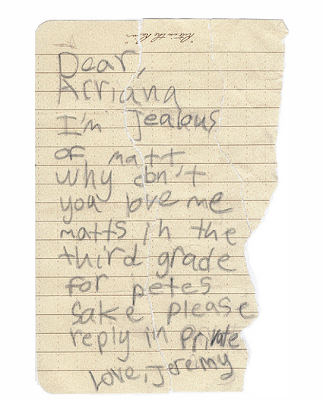 Dear,
Arriana
I'm Jealous
of matt
why don't
you love me
matts in the
third grade
for petes
sake please
reply in private
love, jeremy